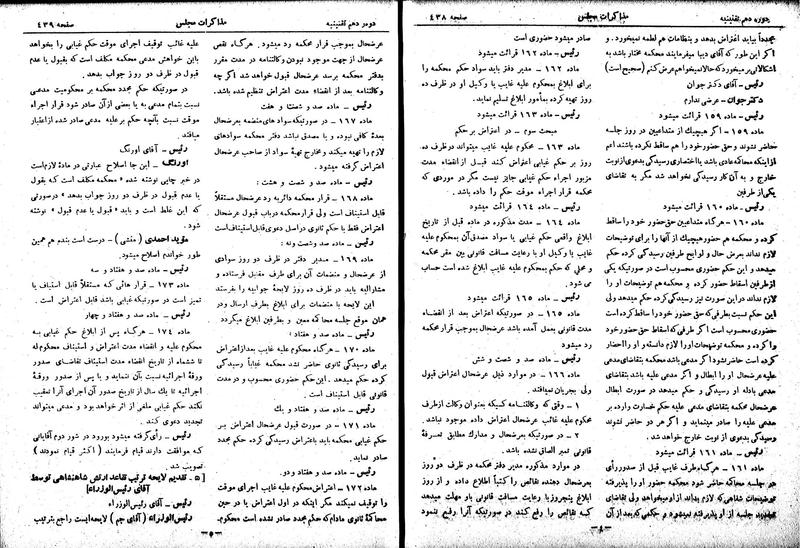 دوره دهم تقنینیه
مذاکرات مجلس
صفحه ۴۳۸
مجدداً بیاید اعتراض بدهد و بنظامات هم لطمه نمیخورد. و
اگر این طور که آقای دیبا میفرمایند محکمه مختار باشد به
اشکالاتی بر میخورد که حالا نمیخواهم عرض کنم (صحیح است)
رئیس – آقای دکتر جوان
دکتر جوان – عرضی ندارم
رئیس – ماده ۱۵۹ قرائت میشود
ماده ۱۵۹ – اگر هیچیک از متداعیین در روز جلسه
حاضر نشوند و حق حضور خود را هم ساقط نکرده باشند اعم
از اینکه محاکمه عادی باشد یا اختصاری رسیدگی بدعوی از نوبت
خارج و به آن کار رسیدگی نخواهد شد مگر به تقاضای
یکی از طرفین
رئیس – ماده ۱۶۰ قرائت میشود
ماده ۱۶۰ – هر گاه متداعیین حق حضور خود را ساقط
کرده و محکمه هم حضور هیچیک از آنها را برای توضیحات
لازم نداند بعرض حال و لوایح طرفین رسیدگی کرده حکم
میدهد و این حکم حضوری محسوب است در صورتیکه یکی
از طرفین اسقاط حضور کرده و محکمه هم توضیحات او را
لازم نداند در این صورت نیز رسیدگی کرده حکم میدهد ولی
این حکم نسبت بطرفی که حق حضور خود را ساقط کرده است
حضوری محسوب است اگر طرفی که اسقاط حق حضور خود
را کرده و محکمه توضیحات او را لازم دانسته و او را احضار
کرده است حاضر نشود اگر مدعی باشد محکمه بتقاضای مدعی
علیه عرضحال او را ابطال و اگر مدعی علیه باشد بتقاضای
مدعی بادله او رسیدگی و حکم میدهد در صورت ابطال
عرضحال محکمه بتقاضای مدعی علیه حکم خسارت وارده بر
او را صادر مینماید و اگر هر دو حاضر نشوند
رسیدگی بدعوی از نوبت خارج خواهد شد.
رئیس – ماده ۱۶۱ قرائت میشود
ماده ۱۶۱ – هر گاه طرف غایب قبل از صدور رأی
در جلسه محاکمه حاضر شود محکمه حضور او را پذیرفته و
توضیحات شفاهی که لازم بداند از او میخواهد ولی تقاضای
تجدید جلسه از او پذیرفته نمیشود و حکمی که بعد از آن
صادر میشود حضوری است
رئیس – ماده ۱۶۲ قرائت میشود
ماده ۱۶۲ – مدیر دفتر باید سواد حکم محکمه را
برای ابلاغ بمحکوم علیه غایب یا وکیل او در ظرف دو
روز تهیه کرده بمأمور ابلاغ تسلیم نماید.
رئیس – ماده ۱۶۳ قرائت میشود
مبحث سوم – در اعتراض بر حکم
ماده ۱۶۳ – محکوم علیه غایب میتواند در ظرف ده
روز بر حکم غیابی اعتراض کند قبل از انقضاء مدت
مزبور اجراء حکم غیابی جایز نیست مگر در موردی که
محکمه قرار اجراء موقت حکم را داده باشد.
رئیس – ماده ۱۶۴ قرائت میشود
ماده ۱۶۴ – مدت مذکوره در ماده قبل از تاریخ
ابلاغ واقعی حکم غیابی یا سواد مصدق آن بمحکوم علیه
غایب یا وکیل او با رعایت مسافت قانونی بین مقر محکمه
و محلی که حکم بمحکوم علیه غایب ابلاغ شده است حساب
می شود.
رئیس – ماده ۱۶۵ قرائت میشود
ماده ۱۶۵ – در صورتیکه اعتراض بعد از انقضاء
مدت قانونی بعمل آمده باشد عرضحال بموجب قرار محکمه
رد میشود
رئیس – ماده صد و شصت و شش
ماده ۱۶۶ – در موارد ذیل عرضحال اعتراض قبول
ولی بجریان نمیافتد.
۱ – وقتی که وکالتنامه کسیکه بعنوان وکالت از طرف
محکوم علیه غایب عرضحال اعتراض داده موجود نباشد.
۲ – در صورتیکه بعرضحال و مدارک مطابق تعرفهٔ
قانونی تمبر الصاق نشده باشد.
در موارد مذکوره مدیر دفتر محکمه در ظرف دو روز
بعرضحال دهنده نقائص را کتباً اطلاع داده و از روز
ابلاغ پنجروز با رعایت مسافت قانونی باو مهلت میدهد
که نقائص را رفع کند در صورتیکه آنرا رفع ننمود
–۸–
دوره دهم تقنینیه
مذاکرات مجلس
صفحه ۴۳۹
عرضحال بموجب قرار محکمه رد میشود. هر گاه نقص
عرضحال از جهت موجود نبودن وکالتنامه در مدت مقرر
بدفتر محکمه برسد عرضحال قبول خواهد شد اگر چه
وکالتنامه بعد از انقضاء مدت اعتراض تنظیم شده باشد.
رئیس – ماده صد و شصت و هفت
ماده ۱۶۷ – در صورتیکه سواد های منضمه بعرضحال
بعدهٔ کافی نبوده و یا مصدق نباشد دفتر محکمه سوادهای
لازم را تهیه میکند و مخارج تهیهٔ سواد از صاحب عرضحال
اعتراض گرفته میشود.
رئیس – ماده صد و شصت و هشت :
ماده ۱۶۸ – قرار محکمه دائر به رد عرضحال مستقلاً
قابل استیناف است ولی قرار محکمه در باب قبول عرضحال
اعتراض فقط با حکم ثانوی در اصل دعوی قابل استیناف است
رئیس – ماده صد و شصت و نه :
ماده ۱۶۹ – مدیر دفتر در ظرف دو روز سوادی
از عرضحال و منضمات آن برای طرف مقابل فرستاده و
مشارالیه باید در ظرف ده روز لایحهٔ جوابیه را بفرستد
این لایحه با منضمات برای ابلاغ بطرف ارسال و در
همان موقع جلسه محاکمه معین و بطرفین ابلاغ میگردد
رئیس – ماده صد و هفتاد :
ماده ۱۷۰ – هر گاه محکوم علیه غایب بعد از اعتراض
برای رسیدگی ثانوی حاضر نشد محکمه غیاباً رسیدگی
کرده حکم میدهد. این حکم حضوری محسوب و در مدت
قانونی قابل استیناف است.
رئیس – ماده صد و هفتاد و یک
ماده ۱۷۱ – در صورت قبول عرضحال اعتراض بر
حکم غیابی محکمه باید باعتراض رسیدگی کرده حکم مجدد
صادر نماید.
رئیس – ماده صد و هفتاد و دو.
ماده ۱۷۲ – اعتراض محکوم علیه غایب اجرای موقت
را توقیف نمیکند مگر اینکه در اول اعتراض یا در حین
محاکمهٔ ثانوی مادام که حکم مجدد صادر نشده است محکوم.
علیه غائب توقیف اجرای موقت حکم غیابی را بخواهد
باین خواهش مدعی محکمه مکلف است که بقبول یا عدم
قبول در ظرف دو روز جواب بدهد.
در صورتیکه حکم مجدد محکمه بر محکومیت مدعی
نسبت بتمام مدعی به یا بعضی از آن صادر شود قرار اجراء
موقت نسبت بآنچه حکم بر علیه مدعی صادر شده از اعتبار
میافتد
رئیس – آقای اورنگ
اورنگ – این جا اصلاح عبارتی در مادهٔ لازم است
در خبر چاپی نوشته شده « محکمه مکلف است که بقول
یا عدم قبول در ظرف دو روز جواب بدهد » در صورتی
که این غلط است و باید « بقبول یا عدم قبول » نوشته
شود.
مؤید احمدی ( منشی ) – درست است بنده هم همین
طور خواندم اصلاح میشود.
رئیس – ماده صد و هفتاد و سه
ماده ۱۷۳ – قرار هائی که مستقلاً قابل استیناف یا
تمیز است در صورتیکه غیابی باشد قابل اعتراض است.
رئیس – ماده صد و هفتاد و چهار
ماده ۱۷۴ – هر گاه پس از ابلاغ حکم غیابی به
محکوم علیه و انقضاء مدت اعتراض و استیناف محکوم له
تا ششماه از تاریخ انقضاء مدت استیناف تقاضای صدور
ورقهٔ اجرائیه نسبت بآن ننماید و یا پس از صدور ورقهٔ
اجرائیه تا یک سال از تاریخ صدور آن اجرای آنرا تعقیب
نکند حکم غیابی ملغی از اثر خواهد بود و مدعی میتواند
تجدید دعوی کند.
رئیس – رأی گرفته میشود بورود در شور دوم آقایانی
که موافقت دارند قیام فرمایند ( اکثر قیام نمودند )
تصویب شد
[ ۵ – تقدیم لایحه ترتیب تقاعد ارتش شاهنشاهی توسط
آقای رئیس‌الوزراء ]
رئیس – آقای رئیس‌الوزراء
رئیس‌الوزراء ( آقای جم ) لایحه‌ایست راجع بترتیب
–۹–